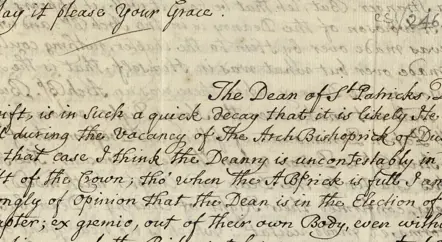 ay it please Your Grace.
248
The Dean of St Patricks
ift, is in Such a quick decay that it is likely He
during the Vacancy of The ArchBishoprick of Du
that case I think the Deanry is uncontertably in
lt of the Crown; tho' when the ABPrick is full I am
ongly of Opinion that the Dean is in the Election of
pter; ex gremio, out of their own Body, even with